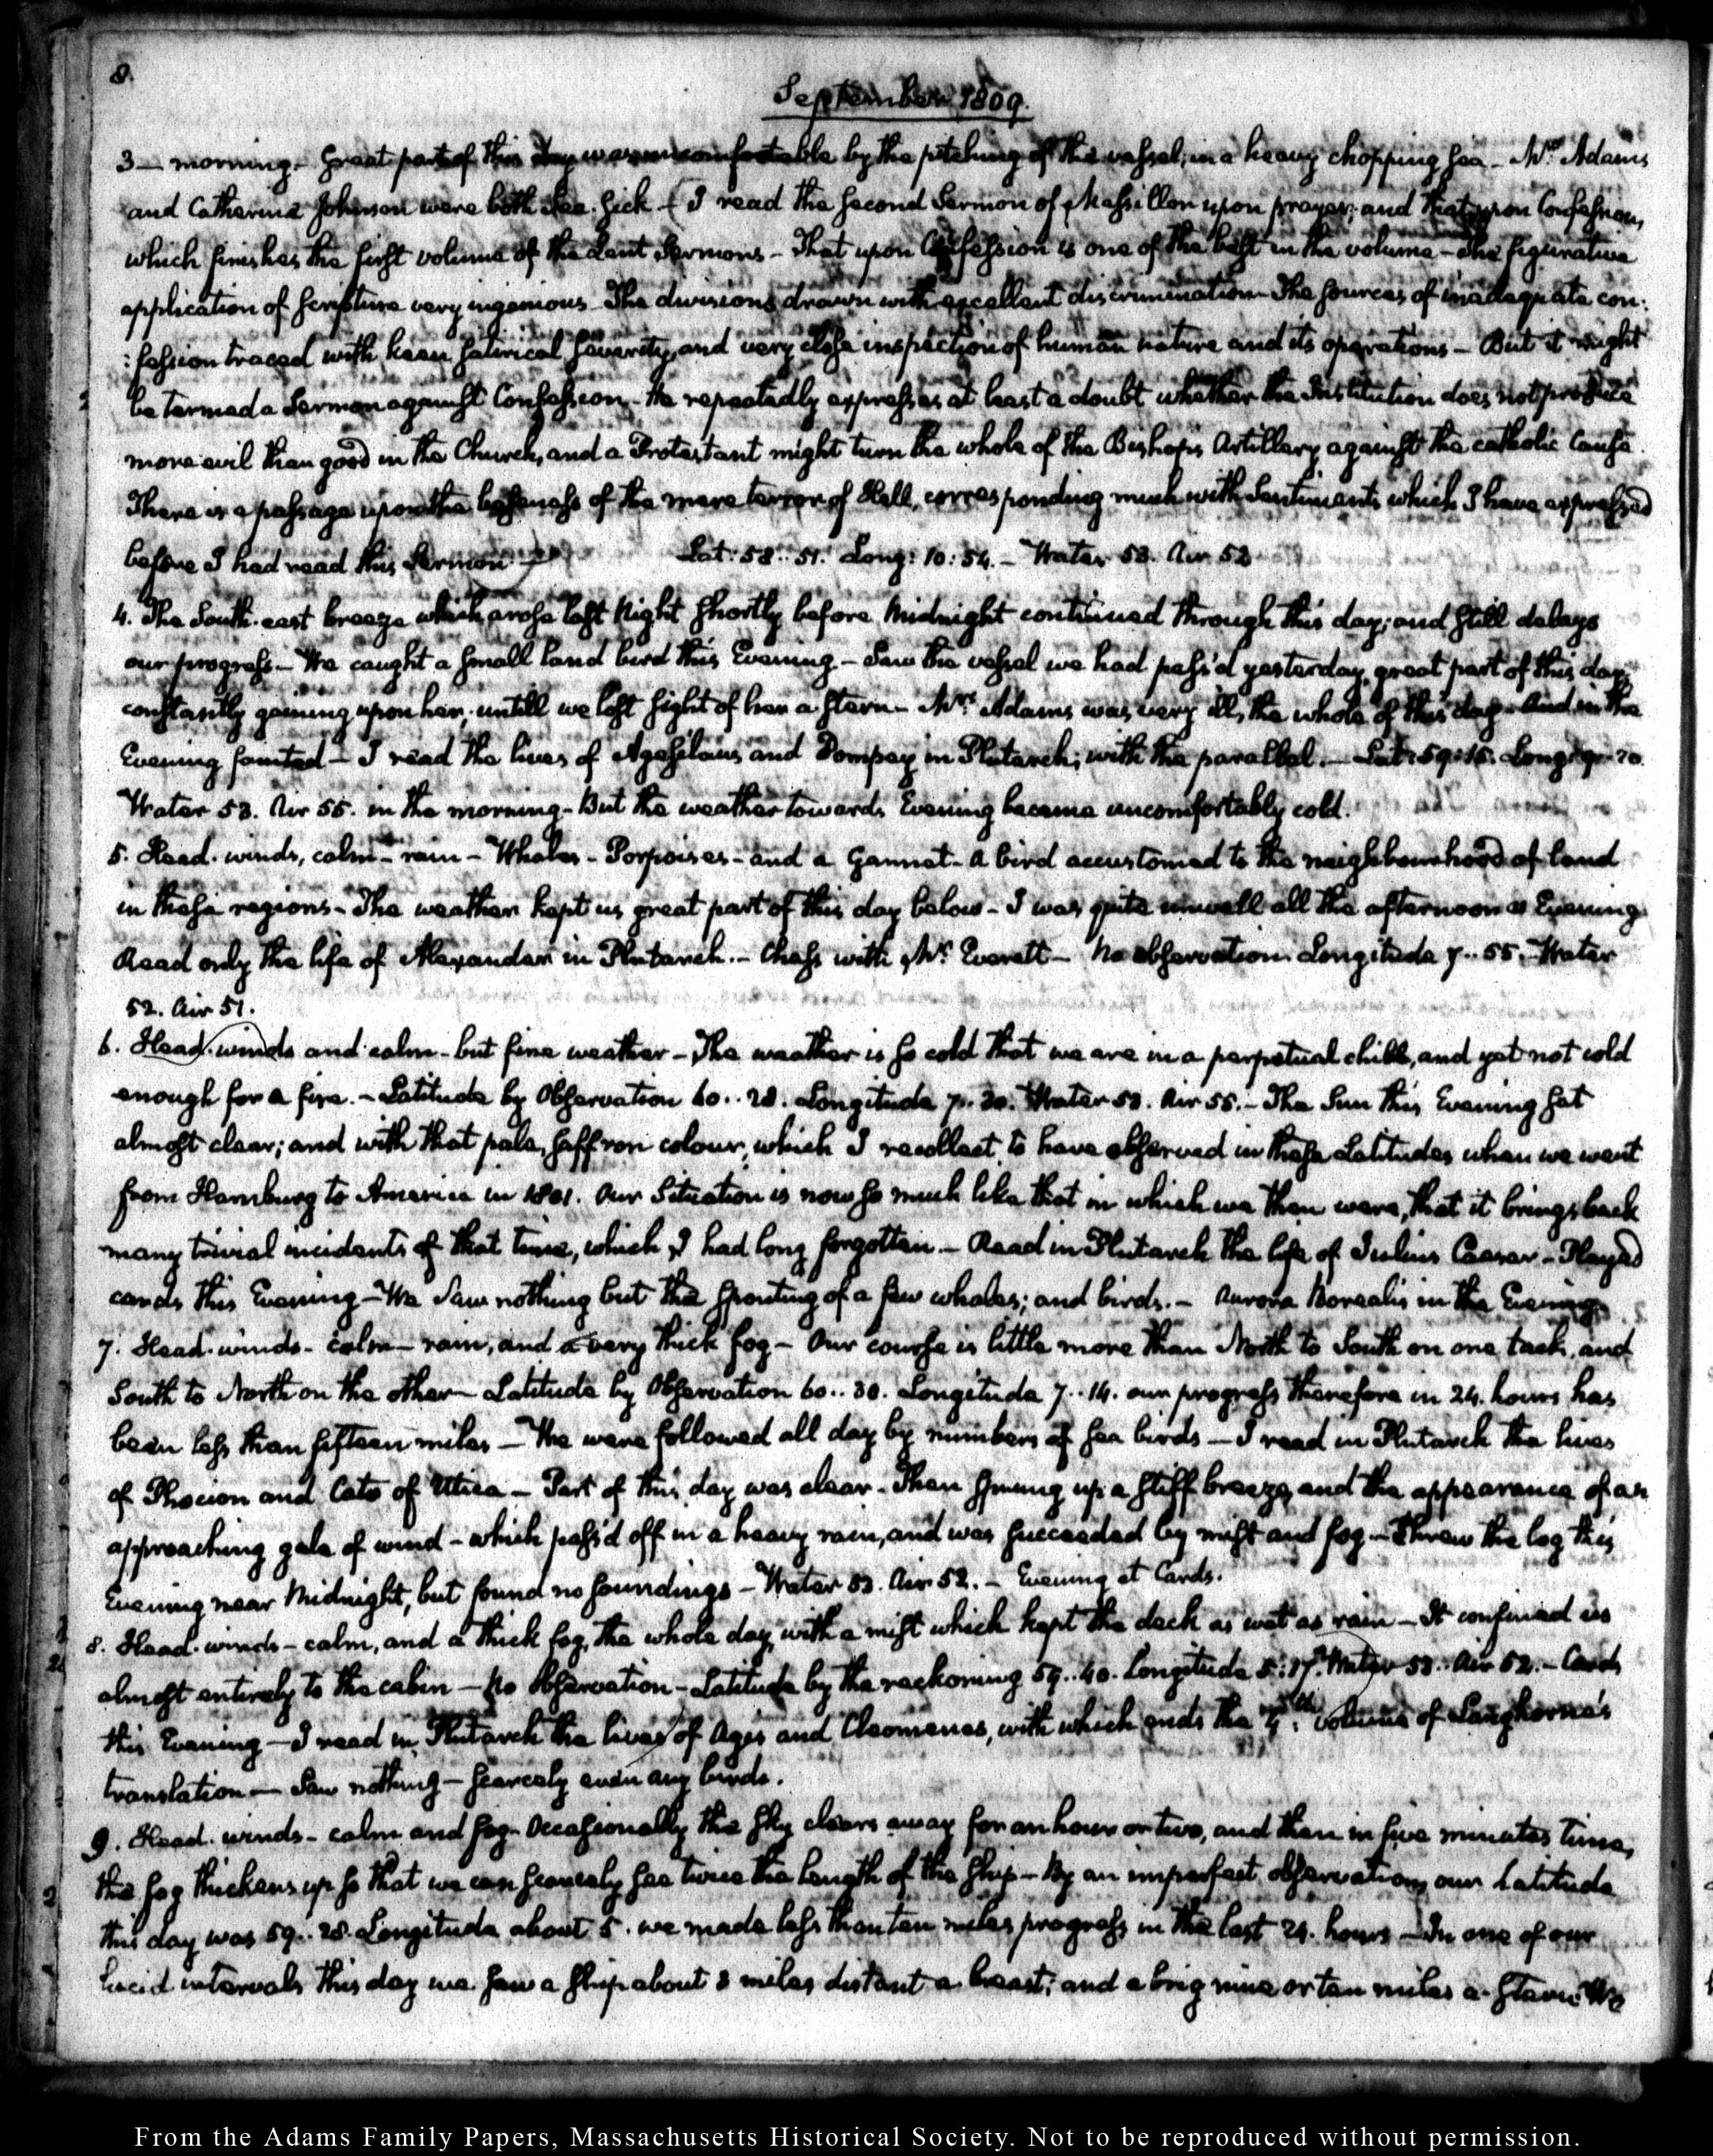 8.
September 1809.
3 — morning. Great part of this day was uncomfortable by the pitching of the vessel, in a heavy chopping sea — Mrs. Adams
and Catherine Johnson were both Sea-Sick — (I read the second Sermon of Massillon upon prayer; and that upon Confession,
which finishes the first volume of the Lent Sermons — That upon Confession is one of the best in the volume — The figurative
application of Scripture very ingenious — The divisions drawn with excellent discrimination — The sources of inadequate con-
:fession traced with keen satirical severity, and very close inspection of human nature and its operations — But it might
be termed a Sermon against Confession — He repeatedly expresses at least a doubt whether the Institution does not produce
more evil than good in the Church, and a Protestant might turn the whole of the Bishop's Artillery against the catholic Cause.
There is a passage upon the baseness of the mere terror of Hell, corresponding much with Sentiments which I have expressed
before I had read this Sermon —) Lat: 58:. 51. Long: 10:54. — Water 53. Air 52
4. The South-east breeze which arose last Night shortly before Midnight continued through this day; and still delays
our progress — We caught a small land bird this Evening — Saw the vessel we had pass'd yesterday, great part of this day,
constantly gaining upon her, untill we lost sight of her a-stern — Mrs. Adams was very ill, the whole of this day — And in the
Evening fainted — I read the lives of Agesilaus and Pompey in Plutarch; with the parallel. — Lat: 59:15. Long: 9: 20.
Water 53. Air 55. in the morning — But the weather towards Evening became uncomfortably cold.
5. Head-winds, calm — rain — Whales — Porpoises — and a Gannet — A bird accustomed to the neighbourhood of land
in these regions — The weather kept us great part of this day below — I was quite unwell all the afternoon & Evening.
Read only the life of Alexander in Plutarch. — Chess with Mr. Everett — No observation. Longitude 7..55. Water
52. Air 51.
6. Head-winds and calm — but fine weather — The weather is so cold that we are in a perpetual chill, and yet not cold
enough for a fire. — Latitude by Observation 60..28. Longitude 7..30. Water 53. Air 55. — The Sun this Evening set
almost clear; and with that pale, saffron colour, which I recollect to have observed in these Latitudes when we went
from Hamburg to America in 1801. Our Situation is now so much like that in which we then were, that it brings back
many trivial incidents of that time, which I had long forgotten. — Read in Plutarch the life of Julius Caesar — Played
cards this Evening — We saw nothing but the spouting of a few whales; and birds. — Aurora Borealis in the Evening.
7. Head-winds — calm — rain, and a very thick fog — Our course is little more than North to South on one tack, and
South to North on the other — Latitude by Observation 60..30. Longitude 7..14. our progress therefore in 24. hours has
been less than fifteen miles — We were followed all day by numbers of sea birds — I read in Plutarch the lives
of Phocion and Cato of Utica — Part of this day was clear — Then sprung up a stiff breeze, and the appearance of an
approaching gale of wind — which pass'd off in a heavy rain, and was succeeded by mist and fog — Threw the log this
Evening near Midnight, but found no soundings — Water 53. Air 52. — Evening at Cards.
8. Head-winds — calm, and a thick fog, the whole day, with a mist which kept the deck as wet as rain — It confined us
almost entirely to the cabin — No Observation — Latitude by the reckoning 59..40. Longitude 5:17. Water 53. Air 52. — Cards
this Evening — I read in Plutarch the lives of Agis and Cleomenes, with which ends the 4th. volume of Langhorne's
translation — Saw nothing — scarcely even any birds.
9. Head-winds — calm and fog — Occasionally the sky clears away for an hour or two, and then in five minutes time,
the fog thickens up so that we can scarcely see twice the length of the ship — By an imperfect observation, our latitude
this day was 59..28. Longitude about 5. we made less than ten miles progress in the last 24. hours — In one of our
lucid intervals this day we saw a ship about 3 miles distant a-breast; and a brig nine or ten miles a-stern. We
From the Adams Family Papers, Massachusetts Historical Society. Not to be reproduced without permission.